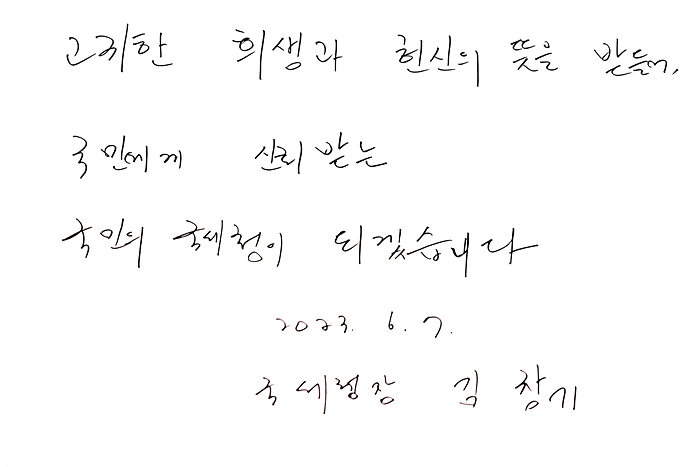 고귀한 희생과 헌신의 뜻을 받들어,
국민에게 신뢰 받는
국민의 국세청이 되겠습니다
2023. 6. 7.
국세청장 김창기